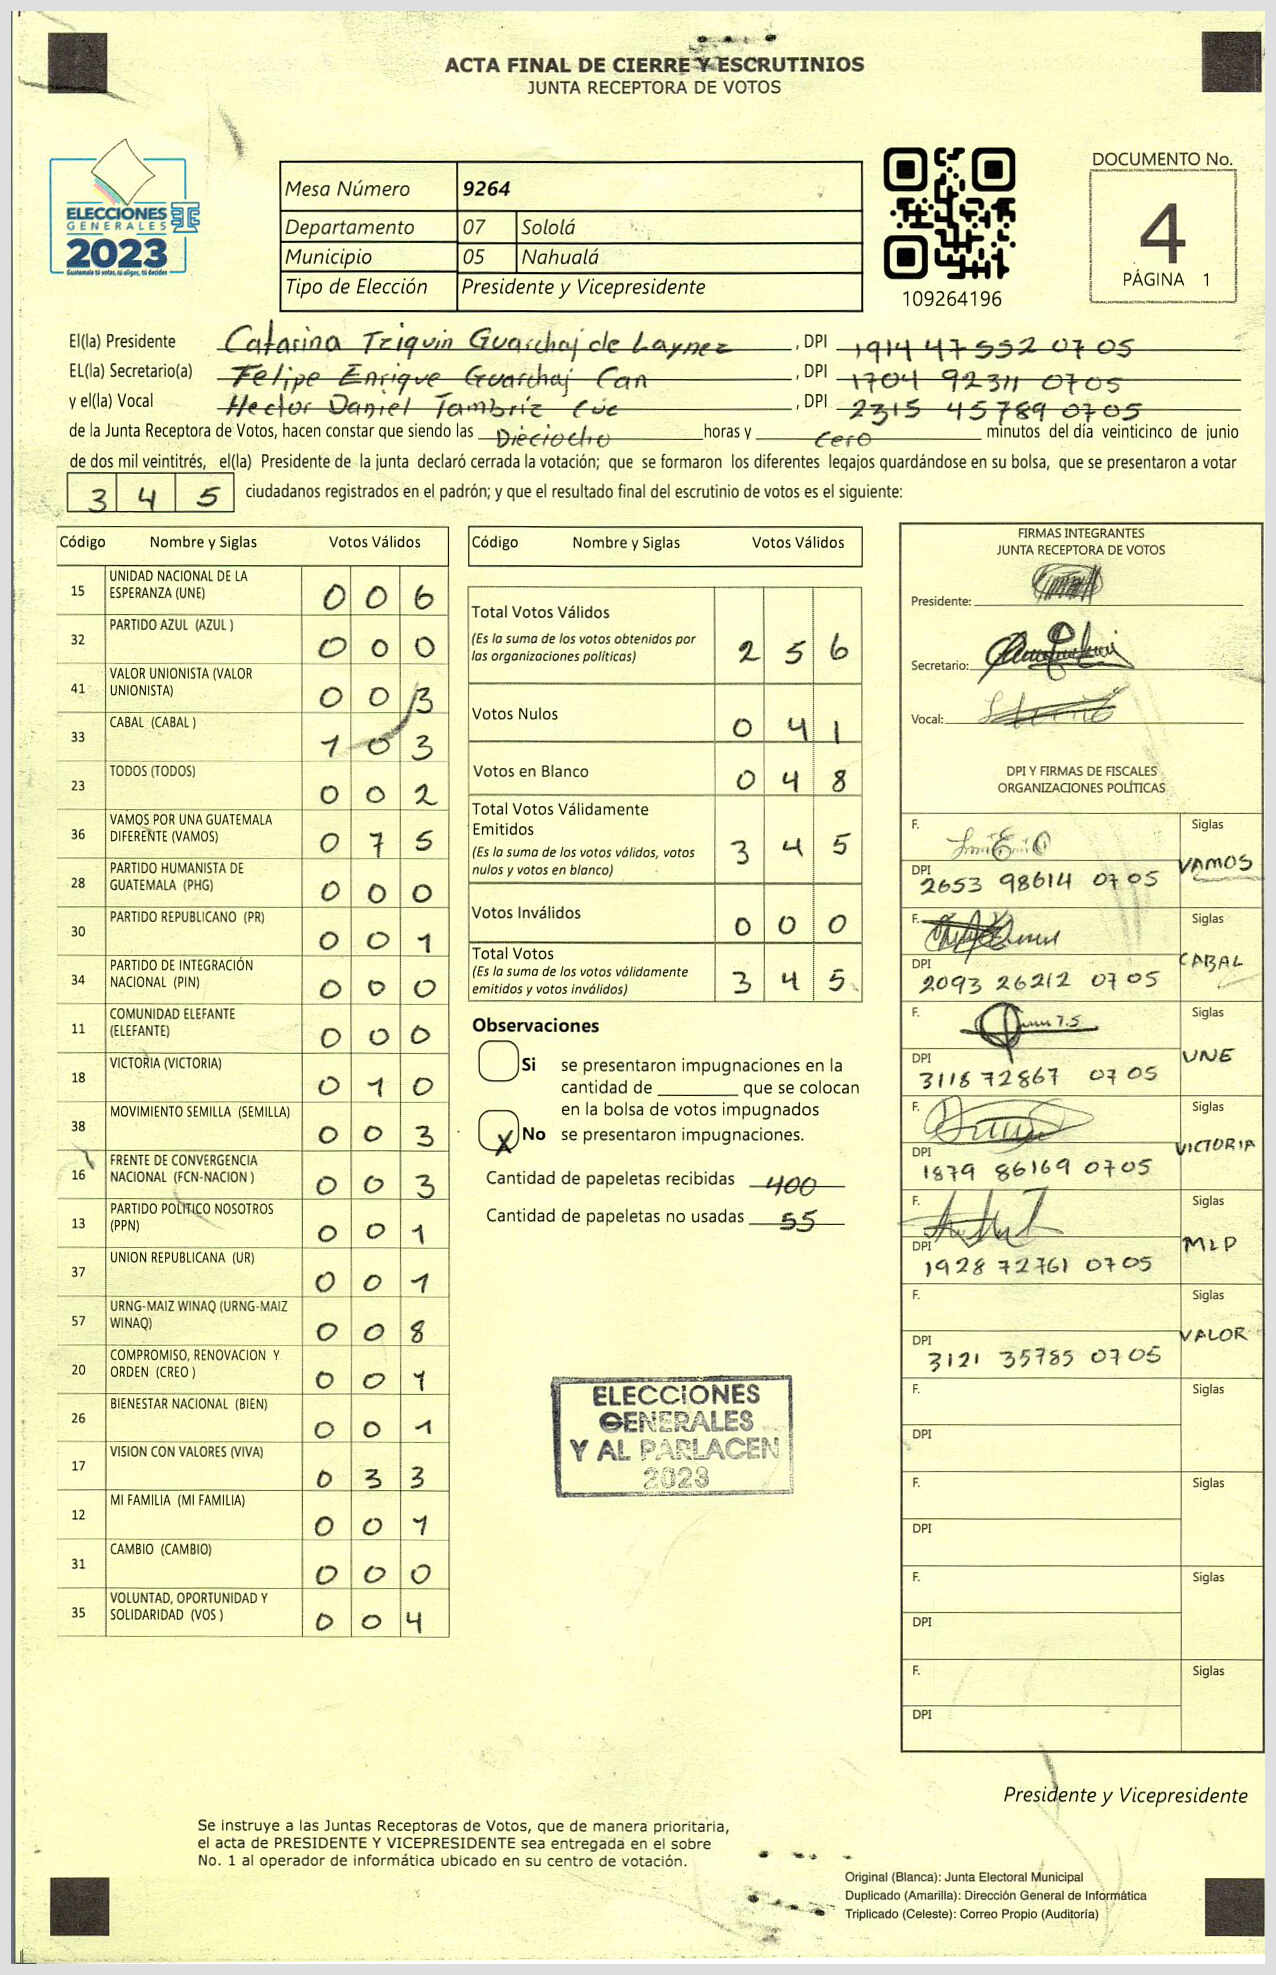 ACTA FINAL DE CIERRE Y ESCRUTINIOS
JUNTA RECEPTORA DE VOTOS
ELECCIONES
GENERALES
2023
Guatemala tú votas, tú eliges, tú decides
Mesa Número 9264
Departamento 07 Sololá
Municipio 05 Nahualá
Tipo de Elección Presidente y Vicepresidente
109264196
DOCUMENTO No.
4
PÁGINA 1
El(la) Presidente Catarina Tziquin Guarchaj de Laynez , DPI 1914 47552 0705
EL(la) Secretario(a) Felipe Enrique Guarchaj Can , DPI 1704 92311 0705
y el(la) Vocal Hector Daniel Tambriz Cúc , DPI 2315 45789 0705
de la Junta Receptora de Votos, hacen constar que siendo las Dieciocho horas y cero minutos del día veinticinco de junio
de dos mil veintitrés, el(la) Presidente de la junta declaró cerrada la votación; que se formaron los diferentes legajos quardándose en su bolsa, que se presentaron a votar
3 4 5 ciudadanos registrados en el padrón; y que el resultado final del escrutinio de votos es el siguiente:
Código Nombre y Siglas Votos Válidos
15 UNIDAD NACIONAL DE LA
ESPERANZA (UNE) 0 0 6
32 PARTIDO AZUL (AZUL ) 0 0 0
41 VALOR UNIONISTA (VALOR
UNIONISTA) 0 0 3
33 CABAL (CABAL ) 1 0 3
23 TODOS (TODOS) 0 0 2
36 VAMOS POR UNA GUATEMALA
DIFERENTE (VAMOS) 0 7 5
28 PARTIDO HUMANISTA DE
GUATEMALA (PHG) 0 0 0
30 PARTIDO REPUBLICANO (PR) 0 0 1
34 PARTIDO DE INTEGRACIÓN
NACIONAL (PIN) 0 0 0
11 COMUNIDAD ELEFANTE
(ELEFANTE) 0 0 0
18 VICTORIA (VICTORIA) 0 1 0
38 MOVIMIENTO SEMILLA (SEMILLA) 0 0 3
16 FRENTE DE CONVERGENCIA
NACIONAL (FCN-NACION ) 0 0 3
13 PARTIDO POLITICO NOSOTROS
(PPN) 0 0 1
37 UNION REPUBLICANA (UR) 0 0 1
57 URNG-MAIZ WINAQ (URNG-MAIZ
WINAQ) 0 0 8
20 COMPROMISO, RENOVACION Y
ORDEN (CREO ) 0 0 1
26 BIENESTAR NACIONAL (BIEN) 0 0 1
17 VISION CON VALORES (VIVA) 0 3 3
12 MI FAMILIA (MI FAMILIA) 0 0 1
31 CAMBIO (CAMBIO) 0 0 0
35 VOLUNTAD, OPORTUNIDAD Y
SOLIDARIDAD (VOS ) 0 0 4
Código Nombre y Siglas Votos Válidos
Total Votos Válidos
(Es la suma de los votos obtenidos por
las organizaciones políticas) 2 5 6
Votos Nulos 0 4 1
Votos en Blanco 0 4 8
Total Votos Válidamente
Emitidos
(Es la suma de los votos válidos, votos
nulos y votos en blanco) 3 4 5
Votos Inválidos 0 0 0
Total Votos
(Es la suma de los votos válidamente
emitidos y votos inválidos) 3 4 5
Observaciones
Si se presentaron impugnaciones en la
cantidad de ________ que se colocan
en la bolsa de votos impugnados
X No se presentaron impugnaciones.
Cantidad de papeletas recibidas 400
Cantidad de papeletas no usadas 55
ELECCIONES
GENERALES
Y AL PARLACEN
2023
FIRMAS INTEGRANTES
JUNTA RECEPTORA DE VOTOS
Presidente:
Secretario:
Vocal:
DPI Y FIRMAS DE FISCALES
ORGANIZACIONES POLÍTICAS
F. Siglas
VAMOS
DPI
2653 98614 0705
F. Siglas
CABAL
DPI
2093 26212 0705
F. Siglas
UNE
DPI
3118 72867 0705
F. Siglas
VICTORIA
DPI
1879 86169 0705
F. Siglas
MLP
DPI
1928 72761 0705
F. Siglas
VALOR
DPI
3121 35785 0705
F. Siglas
DPI
F. Siglas
DPI
F. Siglas
DPI
F. Siglas
DPI
Presidente y Vicepresidente
Se instruye a las Juntas Receptoras de Votos, que de manera prioritaria,
el acta de PRESIDENTE Y VICEPRESIDENTE sea entregada en el sobre
No. 1 al operador de informática ubicado en su centro de votación.
Original (Blanca): Junta Electoral Municipal
Duplicado (Amarilla): Dirección General de Informática
Triplicado (Celeste): Correo Propio (Auditoría)